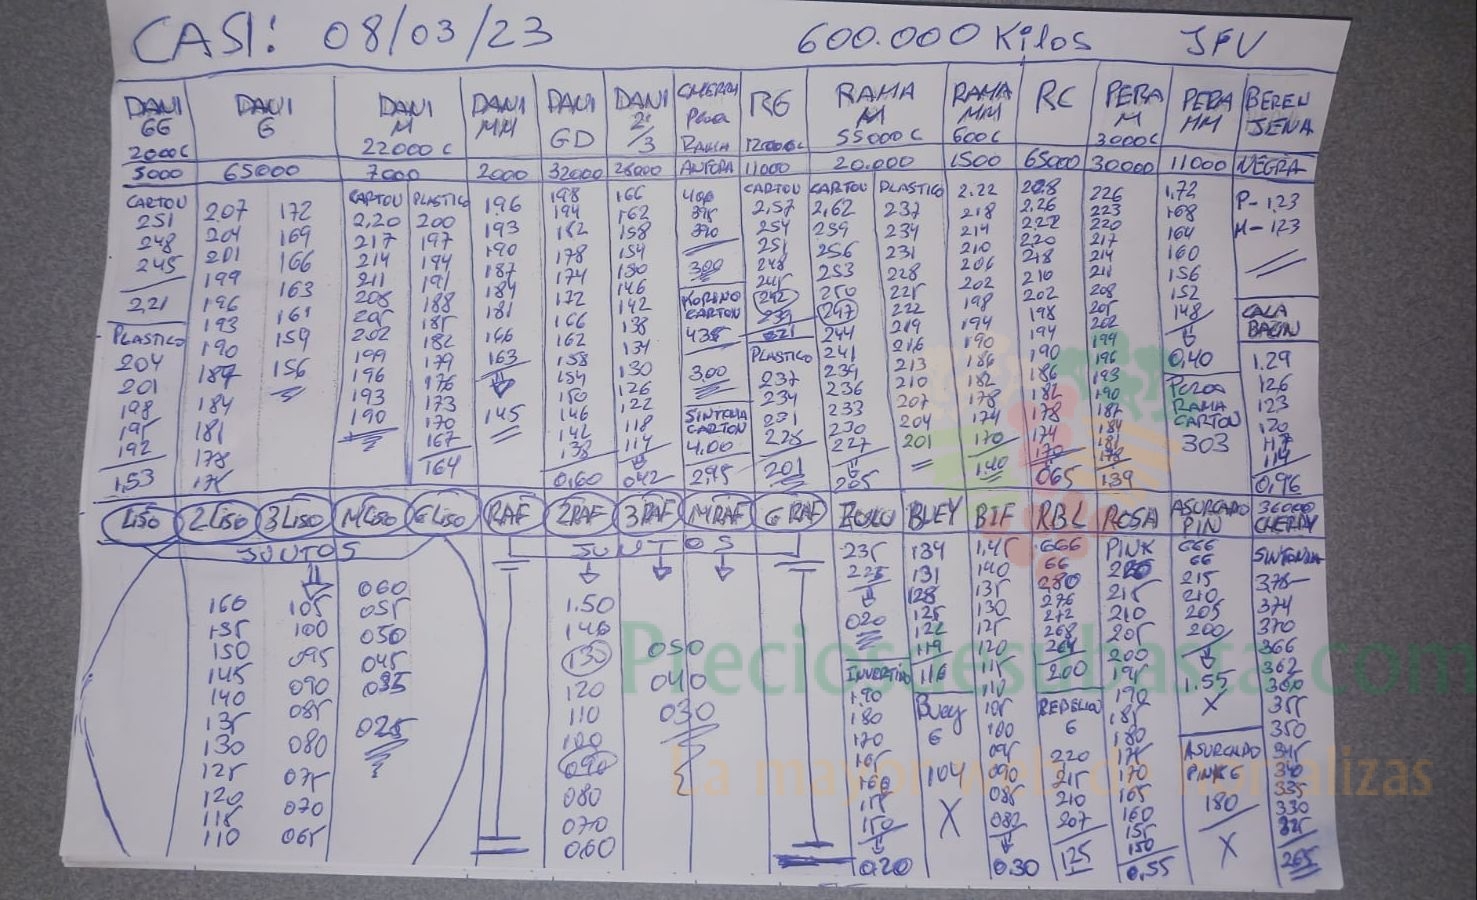 CASI: 08/03/23 600.000 Kilos JFV
DANI GG 2000C
DANI G
DANI M 22000C
DANI MM
DANI GD
DANI 2ª/3
CHERRY Pera RAMA
RG 12000C
RAMA M 55000C
RAMA MM 600C
RC
PERA M 3000C
PERA MM
BEREN JENA
5000 65000 7000 2000 32000 28000 ANFORA 11000 20.000 1500 65000 30000 11000 NEGRA
CARTON
251
248
245
221
PLASTICO
204
201
198
195
192
1,53
207
204
201
199
196
193
190
187
184
181
178
175
172
169
166
163
161
159
156
CARTON
2,20
217
214
211
208
205
202
199
196
193
190
PLASTICO
200
197
194
191
188
185
182
179
176
173
170
167
164
196
193
190
187
184
181
166
163
145
198
194
182
178
174
172
166
162
158
154
150
146
142
138
0,60
166
162
158
154
150
146
142
138
134
130
126
122
118
114
042
400
395
390
300
KORINO
CARTON
435
3,00
SINTONIA
CARTON
4.00
2,95
CARTON
2,57
254
251
248
245
242
239
221
PLASTICO
237
234
231
228
201
CARTON
2,62
259
256
253
250
247
244
241
239
236
233
230
227
205
PLASTICO
237
234
231
228
225
222
219
216
213
210
207
204
201
2.22
218
214
210
206
202
198
194
190
186
182
178
174
170
1.40
228
2.26
222
220
218
210
202
198
194
190
186
182
178
174
170
065
226
223
220
217
214
211
208
205
202
199
196
193
190
187
184
181
178
139
1,72
168
164
160
156
152
148
0,40
RAMA
CARTON
303
P-123
M-123
CALA
BACIN
1.29
126
123
120
117
114
0,96
LISO 2 LISO 3 LISO M LISO G LISO RAF 2 RAF 3 RAF M RAF G RAF ZULU BUEY BIF RBL ROSA ASURCADO PIN 36000 CHERRY
JUNTOS
JUNTOS
160
155
150
145
140
135
130
125
120
115
110
105
100
095
090
085
080
075
070
065
060
055
050
045
035
025
1.50
140
130
120
110
100
090
080
070
060
050
040
030
235
225
020
INVERTIDO
1.90
180
170
165
160
155
150
0.20
134
131
128
125
122
119
116
Buey
G
104
X
1.45
140
135
130
125
120
115
110
105
100
095
090
085
082
0.30
666
66
280
276
272
268
264
200
REBELION
G
220
215
210
207
125
PINK
220
215
210
205
200
195
190
185
180
175
170
165
160
155
150
0,55
666
66
215
210
205
200
1.55
X
ASURCADO
PINK G
180
X
SINTONIA
378
374
370
366
362
360
355
350
345
340
335
330
325
265
Preciosdesubasta.com
La mayor web de hortalizas